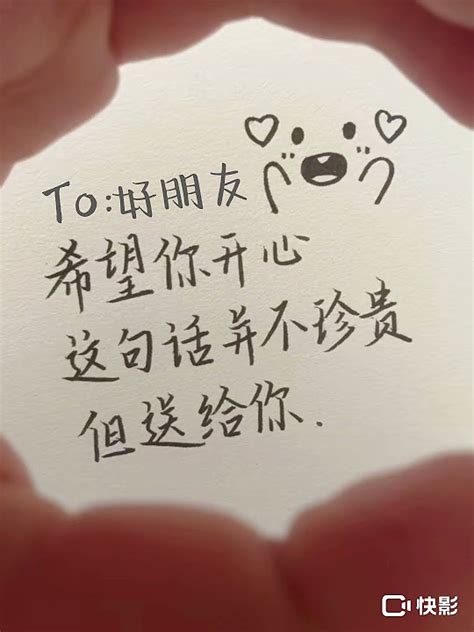 To:好朋友
希望你开心
这句话并不珍贵
但送给你.
快影